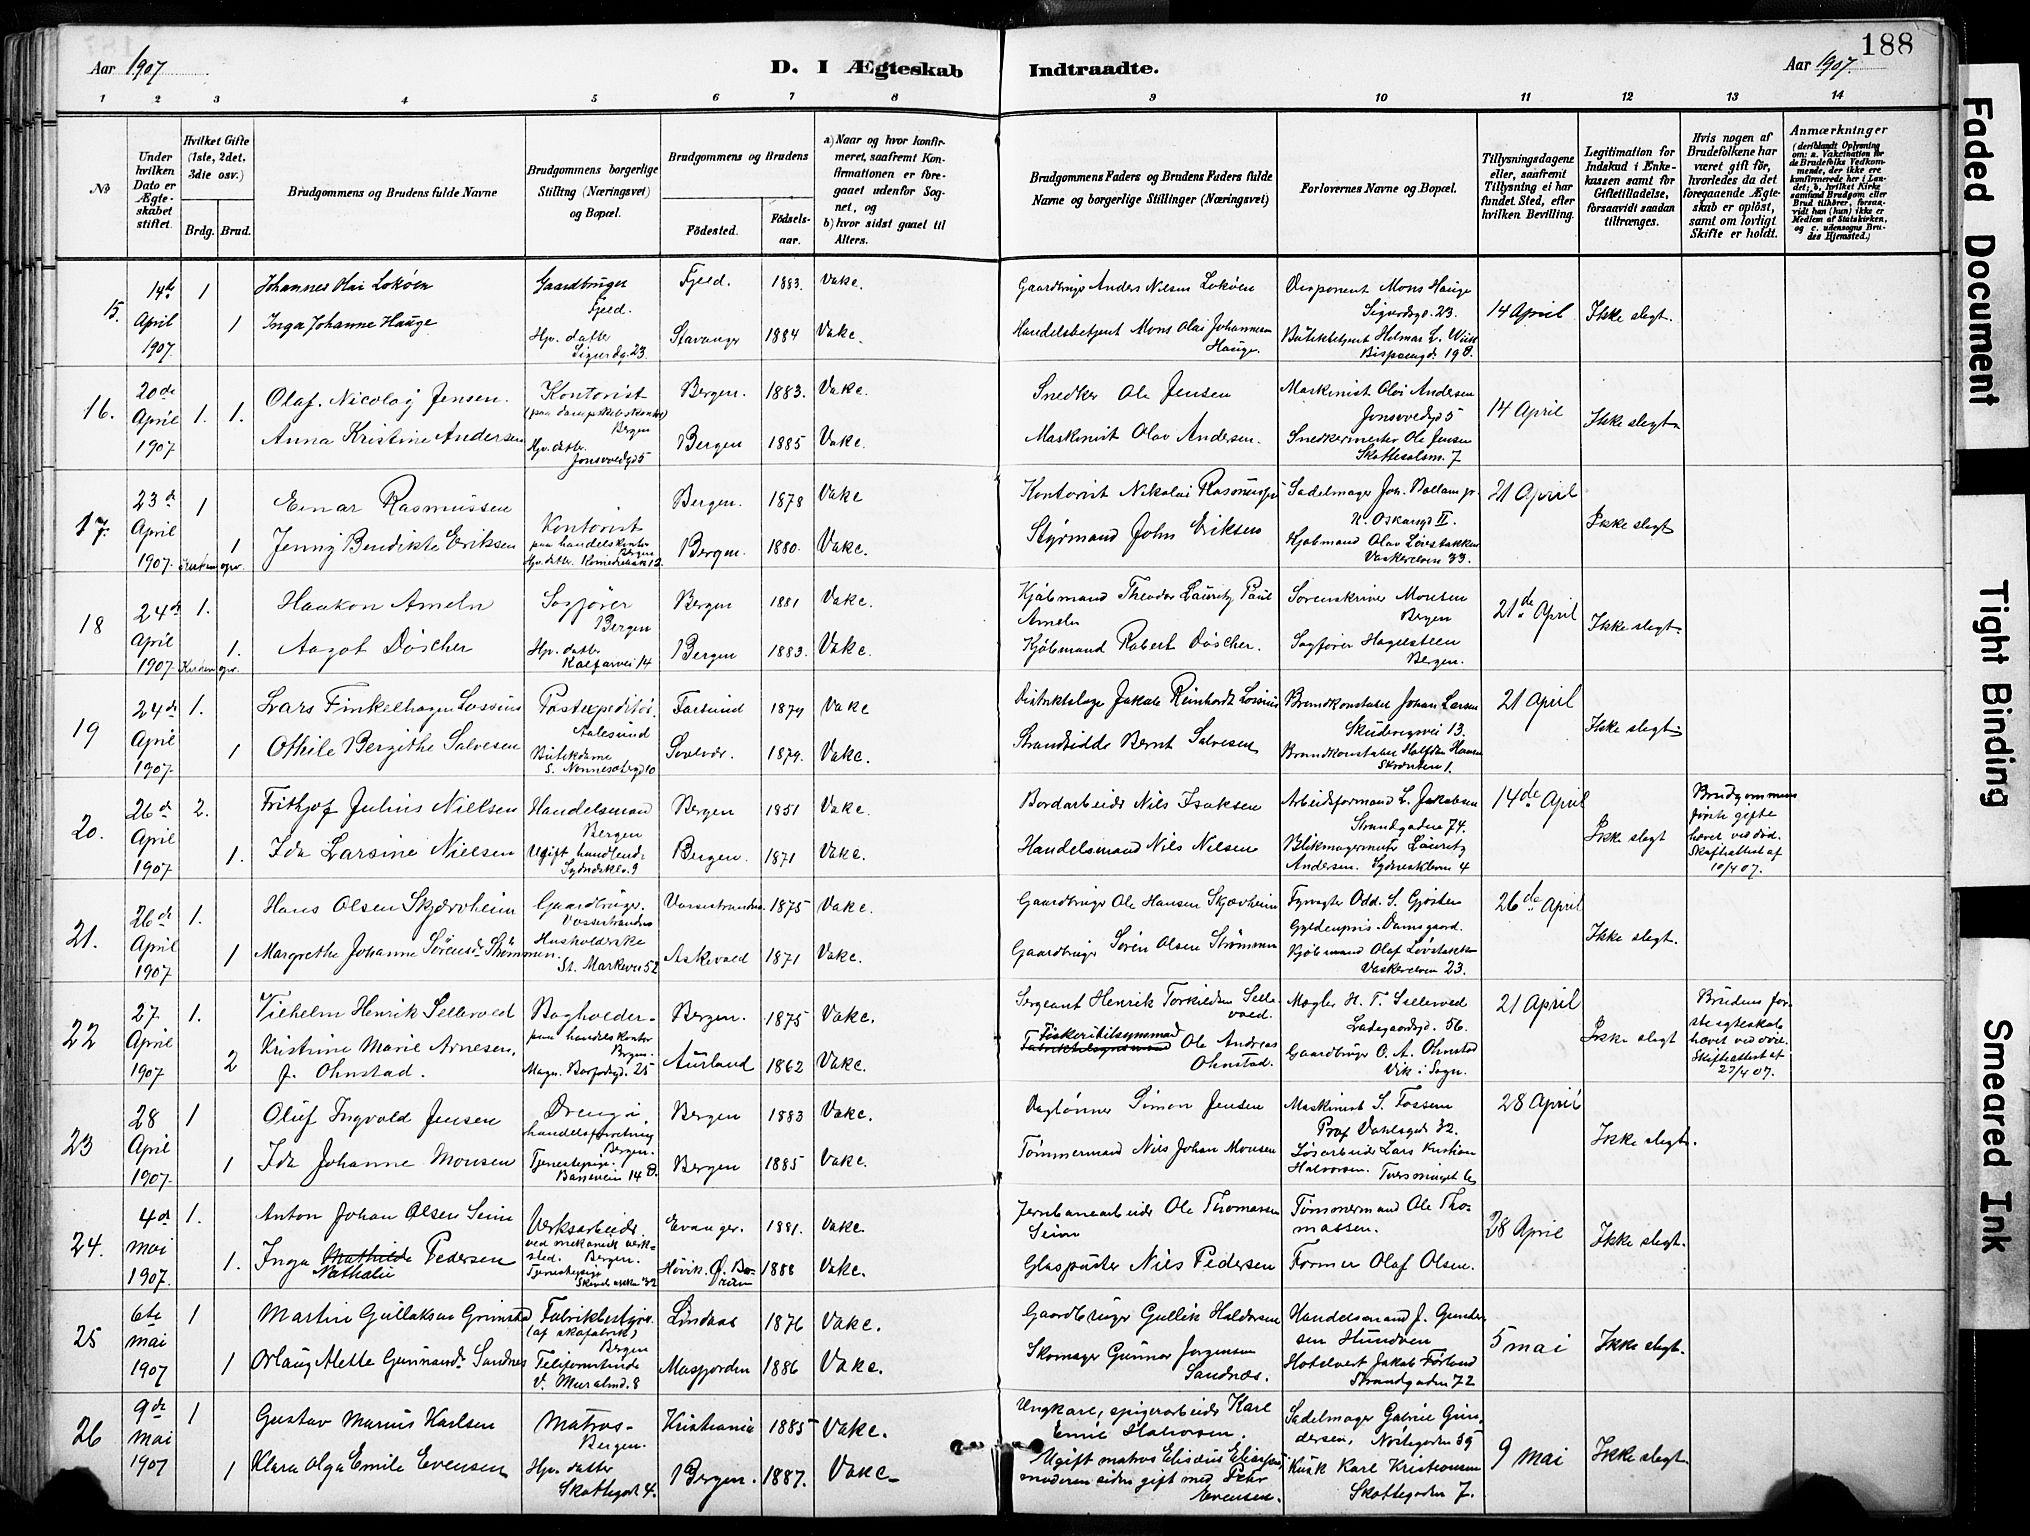 188
Aar 1907
D. I Ægteskab Indtraadte.
Aar 1907.
1 2 3 4 5 6 7 8 9 10 11 12 13 14
No
Under hvilken Dato er Ægteskabet stiftet.
Hvilket Gifte (1ste, 2det, 3die osv.)
Brdg. Brud.
Brudgommens og Brudens fulde Navne
Brudgommens borgerlige Stilling (Næringsvei) og Bopæl.
Brudgommens og Brudens
Fødested.
Fødsels-aar.
a) Naar og hvor konfirmeret, saafremt Konfirmationen er foregaaet udenfor Sognet, og
b) hvor sidst gaaet til Alters.
Brudgommens Faders og Brudens Faders fulde Navne og borgerlige Stillinger (Næringsvei)
Forlovernes Navne og Bopæl.
Tillysningsdagene eller, saafremt Tillysning ei har fundet Sted, efter hvilken Bevilling.
Legitimation for Indskud i Enkekassen samt for Giftetilladelse, forsaavidt saadan tiltrænges.
Hvis nogen af Brudefolkene har været gift før, hvorledes da det foregaaende Ægteskab er opløst, samt om lovligt Skifte er holdt.
Anmærkninger (deriblandt Oplysning om: a. Vakcination for de Brudefolks Vedkommende, der ikke ere konfirmerede her i Landet; b. hvilket Kirkesamfund Brudgom eller Brud tilhører, forsaavidt han (hun) ikke er Medlem af Statskirken, og c. udensogns Brudes Hjemsted.)
15. 14de April 1907. 1 Johannes Olai Lokøen Gaardbruger Fjeld. Fjeld. 1883. Vakc. Gaardbruger Anders Nilsen Lokøen Disponent Mons Hauge Sigurdsgd. 23. 14 April Ikke slegt.
1 Inga Johanne Hauge Hp. datter Sigurdsg. 23. Stavanger 1884 Vakc. Handelsbetjent Mons Olai Johannesen Hauge.
16. 20de April 1907 1. 1. Olaf Nicolay Jensen. Kontorist Bergen Bergen. 1883. Vakc. Snedker Ole Jensen Maskinist Olai Andersen Jonsvoldgd 5 14 April Ikke slegt
Anna Kristine Andersen Hp. datter. Jonsvoldgd 5 Bergen 1885 Vakc. Maskinist Olav Andersen. Snedkermester Ole Jensen Skottesalm. 7
17. 23de April 1907. 1 Einar Rasmussen Kontorist paa handelskontor Bergen Bergen. 1878 Vakc Kontorist Nikolai Rasmussen Sadelmager Joh. 21 April Ikke slegt
1 Jenny Bendikte Eriksen Hp. datter. Bergen. 1880. Vakc. Styrmand John Eriksen Kjøbmand Olav Løvstakken 33.
18 24de April 1907. 1. Haakon Ameln Sagfører Bergen Bergen 1881 Vakc. Kjøbmand Theodor Lauritz Paul Ameln Sorenskriver Monsen Bergen 21de April Ikke slegt
1. Aagot Döscher Hp. datter Kalfarvei 14 Bergen 1883. Vakc. Kjøbmand Robert Döscher. Sagfører Hagelsteen Bergen.
19 24de April 1907. 1. Lars Finkelhagen Lossius Postexpeditør. Aalesund 1879 Vakc Distriktslæge Jakob Reinhardt Lossius Brandkonstabel Johan Larsen Skuteviksvei 13. 21 April Ikke slegt
1 Othile Bergithe Salvesen Butikdame Solvær. 1879. Vakc. Strandsidder Bernt Salvesen Brandkonstabel Halfdan Hansen Skrænten 1.
20. 26de April 1907 2. Frithjof Julius Nielsen Handelsmand Bergen Bergen 1851 Vakc. Bordarbeider Nils Isaksen Arbeidsformand L. Jakobsen Strandgaden 74. 14de April Ikke slegt Brudgommens første gifte hævet ved død. Skifteattest af 10/4 07.
1. Ida Larsine Nielsen Ugift handlende Sydneskl. 9 Bergen. 1871 Vakc. Handelsmand Nils Nielsen Blikmagermester Lauritz Andersen. Sydneskleven 4
21. 26de April 1907 1. Hans Olsen Skjærvheim Gaardbruger. Vossestranden Vossestranden. 1875 Vakc. Gaardbruger Ole Hansen Skjærvheim Fyrvagter Odd. S. Gjøsten Gyldenpris. Damsgaard. 26de April Ikke slegt.
1 Margrethe Johanne Sørensd. Strømmen. Husholderske St. Markevei 52 Askevold 1871 Vakc. Gaardbruger Søren Olsen Strømmen Kjøbmand Olaf Løvstakken 23.
22 27 April 1907 1. Vilhelm Henrik Sellevold Bogholder paa handelskontor Bergen. Bergen. 1875 Vakc. Sergeant Henrik Torkildsen Sellevold. Mægler H. T. Sellevold Ladegaardsgd. 56. 21 April Ikke slegt Brudens første egteskab hævet ved død. Skifteattest af 27/4 07.
2 Kristine Marie Arnesen, f. Ohnstad. Magn. Barfodsgd. 25 Aurland 1862 Vakc. Fiskeritilsynsmand Ole Andreas Ohnstad. Gaardbruger O. A. Ohnstad Vik i Sogn.
23 28 April 1907. 1 Oluf Ingvald Jensen Dreng i handelsforretning Bergen. Bergen 1883 Vakc. Daglønner Simon Jensen Maskinist S. Fossum Prof Dahlsgd 32. 28 April Ikke slegt.
1 Ida Johanne Monsen Tjenestepige. Bergen 1885 Vakc. Tømmermand Nils Johan Monsen Løsarbeider Lars Kristian Halvorsen.
24. 4de mai 1907. 1. Anton Johan Olsen Seim Verksarbeider. ved mekanisk verksted. Bergen. Evanger. 1881. Vakc. Jernbanearbeider Ole Thomassen Seim Tømmermand Ole Thomassen. 28 April Ikke slegt.
1. Inga Mathilde Nathalie Pedersen Tjenestepige Høvik. Ø. Bærum 1888 Vakc. Glaspuster Nils Pedersen Former Olaf Olsen.
25 6te mai 1907 1 Martin Gullaksen Grimstad Fabrikbestyrer. (af skofabrik) Bergen Lindaas 1876 Vakc. Gaardbruger Gullik Haldorsen Handelsmand J. Gundersen Hundven 5 mai Ikke slegt.
1 Orlaug Alette Gunnarsd. Sandnes Telefonistinde V. Muralm. 8 Masfjorden 1886 Vakc. Skomager Gunnar Jørgensen Sandnæs. Hotelvert Jakob Førland Strandgaden 72
26 9de mai 1907 1 Gustav Marius Karlsen Matros Bergen. Kristiania 1885 Vakc. Ungkarl, spigerarbeider Karl Emil Halvorsen. Sadelmager Gabriel Gundersen, Nøstegaden 39 9 mai Ikke slegt.
1 Klara Olga Emilie Evensen Hp. datter Skottegd. 4. Bergen. 1887. Vakc. Ugift matros Elisæus Eliasen, moderen siden gift med Peter Evensen. Kusk Karl Kristiansen Skottegaden 7.
Faded Document
Tight Binding
Smeared Ink